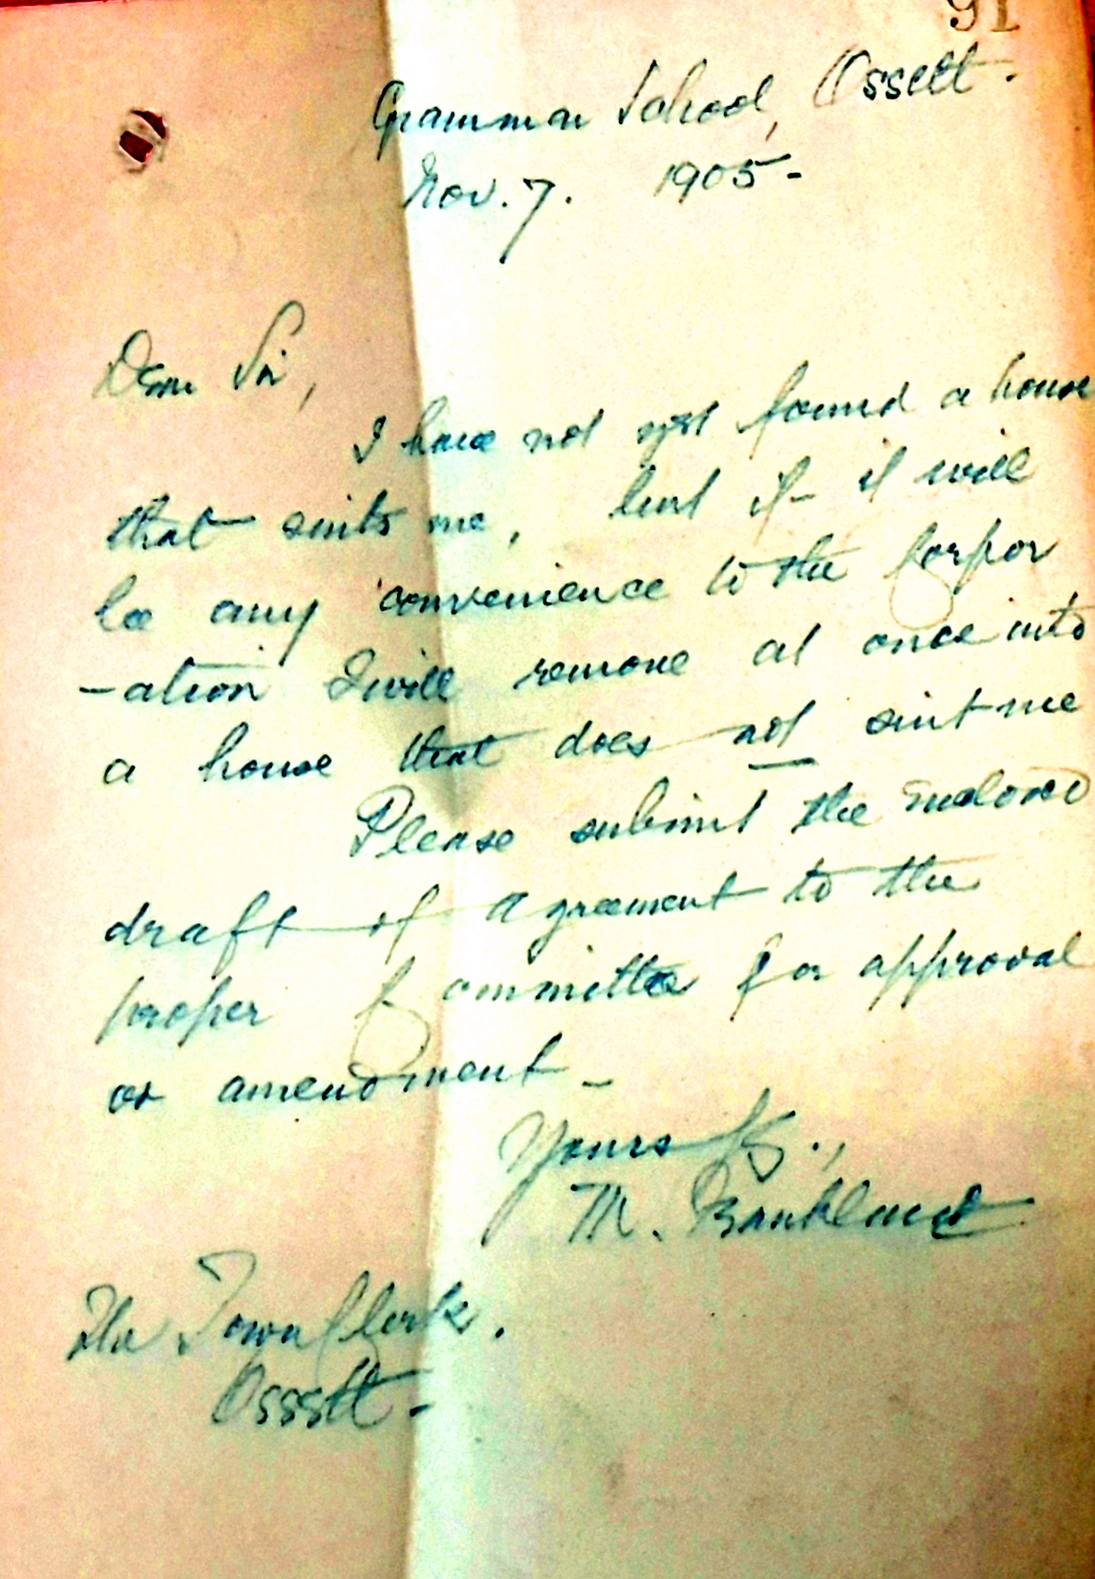 91
Grammar School, Ossett.
Nov. 7. 1905-
Dear Sir,
I have not yet found a house
that suits me, but if it will
be any convenience to the Corpor
-ation I will remove at once into
a house that does not suit me
Please submit the enclosed
draft of agreement to the
proper Committee for approval
or amendment -
Yours
M. Frankland
The Town Clerk.
Ossett-